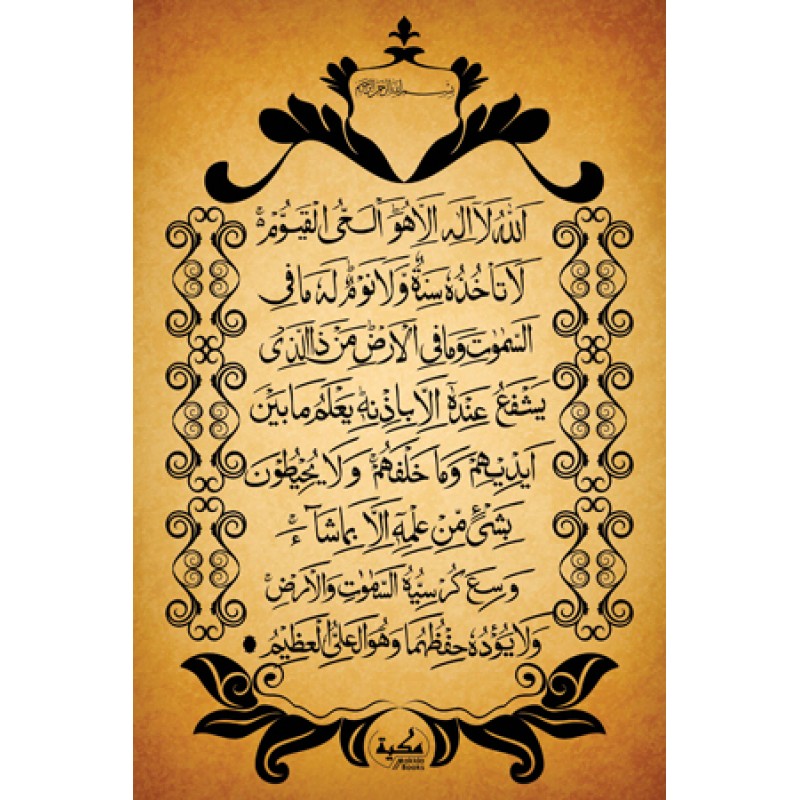 بسم الله الرحمن الرحيم
اَللّٰهُ لَآ اِلٰهَ اِلَّا هُوَۚ اَلْحَیُّ الْقَیُّوْمُ ۚ
لَا تَاْخُذُهٗ سِنَةٌ وَّلَا نَوْمٌؕ لَهٗ مَا فِی
السَّمٰوٰتِ وَمَا فِی الْاَرْضِؕ مَنْ ذَا الَّذِیْ
یَشْفَعُ عِنْدَهٗۤ اِلَّا بِاِذْنِهٖؕ یَعْلَمُ مَا بَیْنَ
اَیْدِیْهِمْ وَمَا خَلْفَهُمْۚ وَلَا یُحِیْطُوْنَ
بِشَیْءٍ مِّنْ عِلْمِهٖۤ اِلَّا بِمَا شَآءَۚ
وَسِعَ كُرْسِیُّهُ السَّمٰوٰتِ وَالْاَرْضَۚ
وَلَا یَـُٔوْدُهٗ حِفْظُهُمَا وَهُوَ الْعَلِیُّ الْعَظِیْمُ
مكية
Makkia
Books